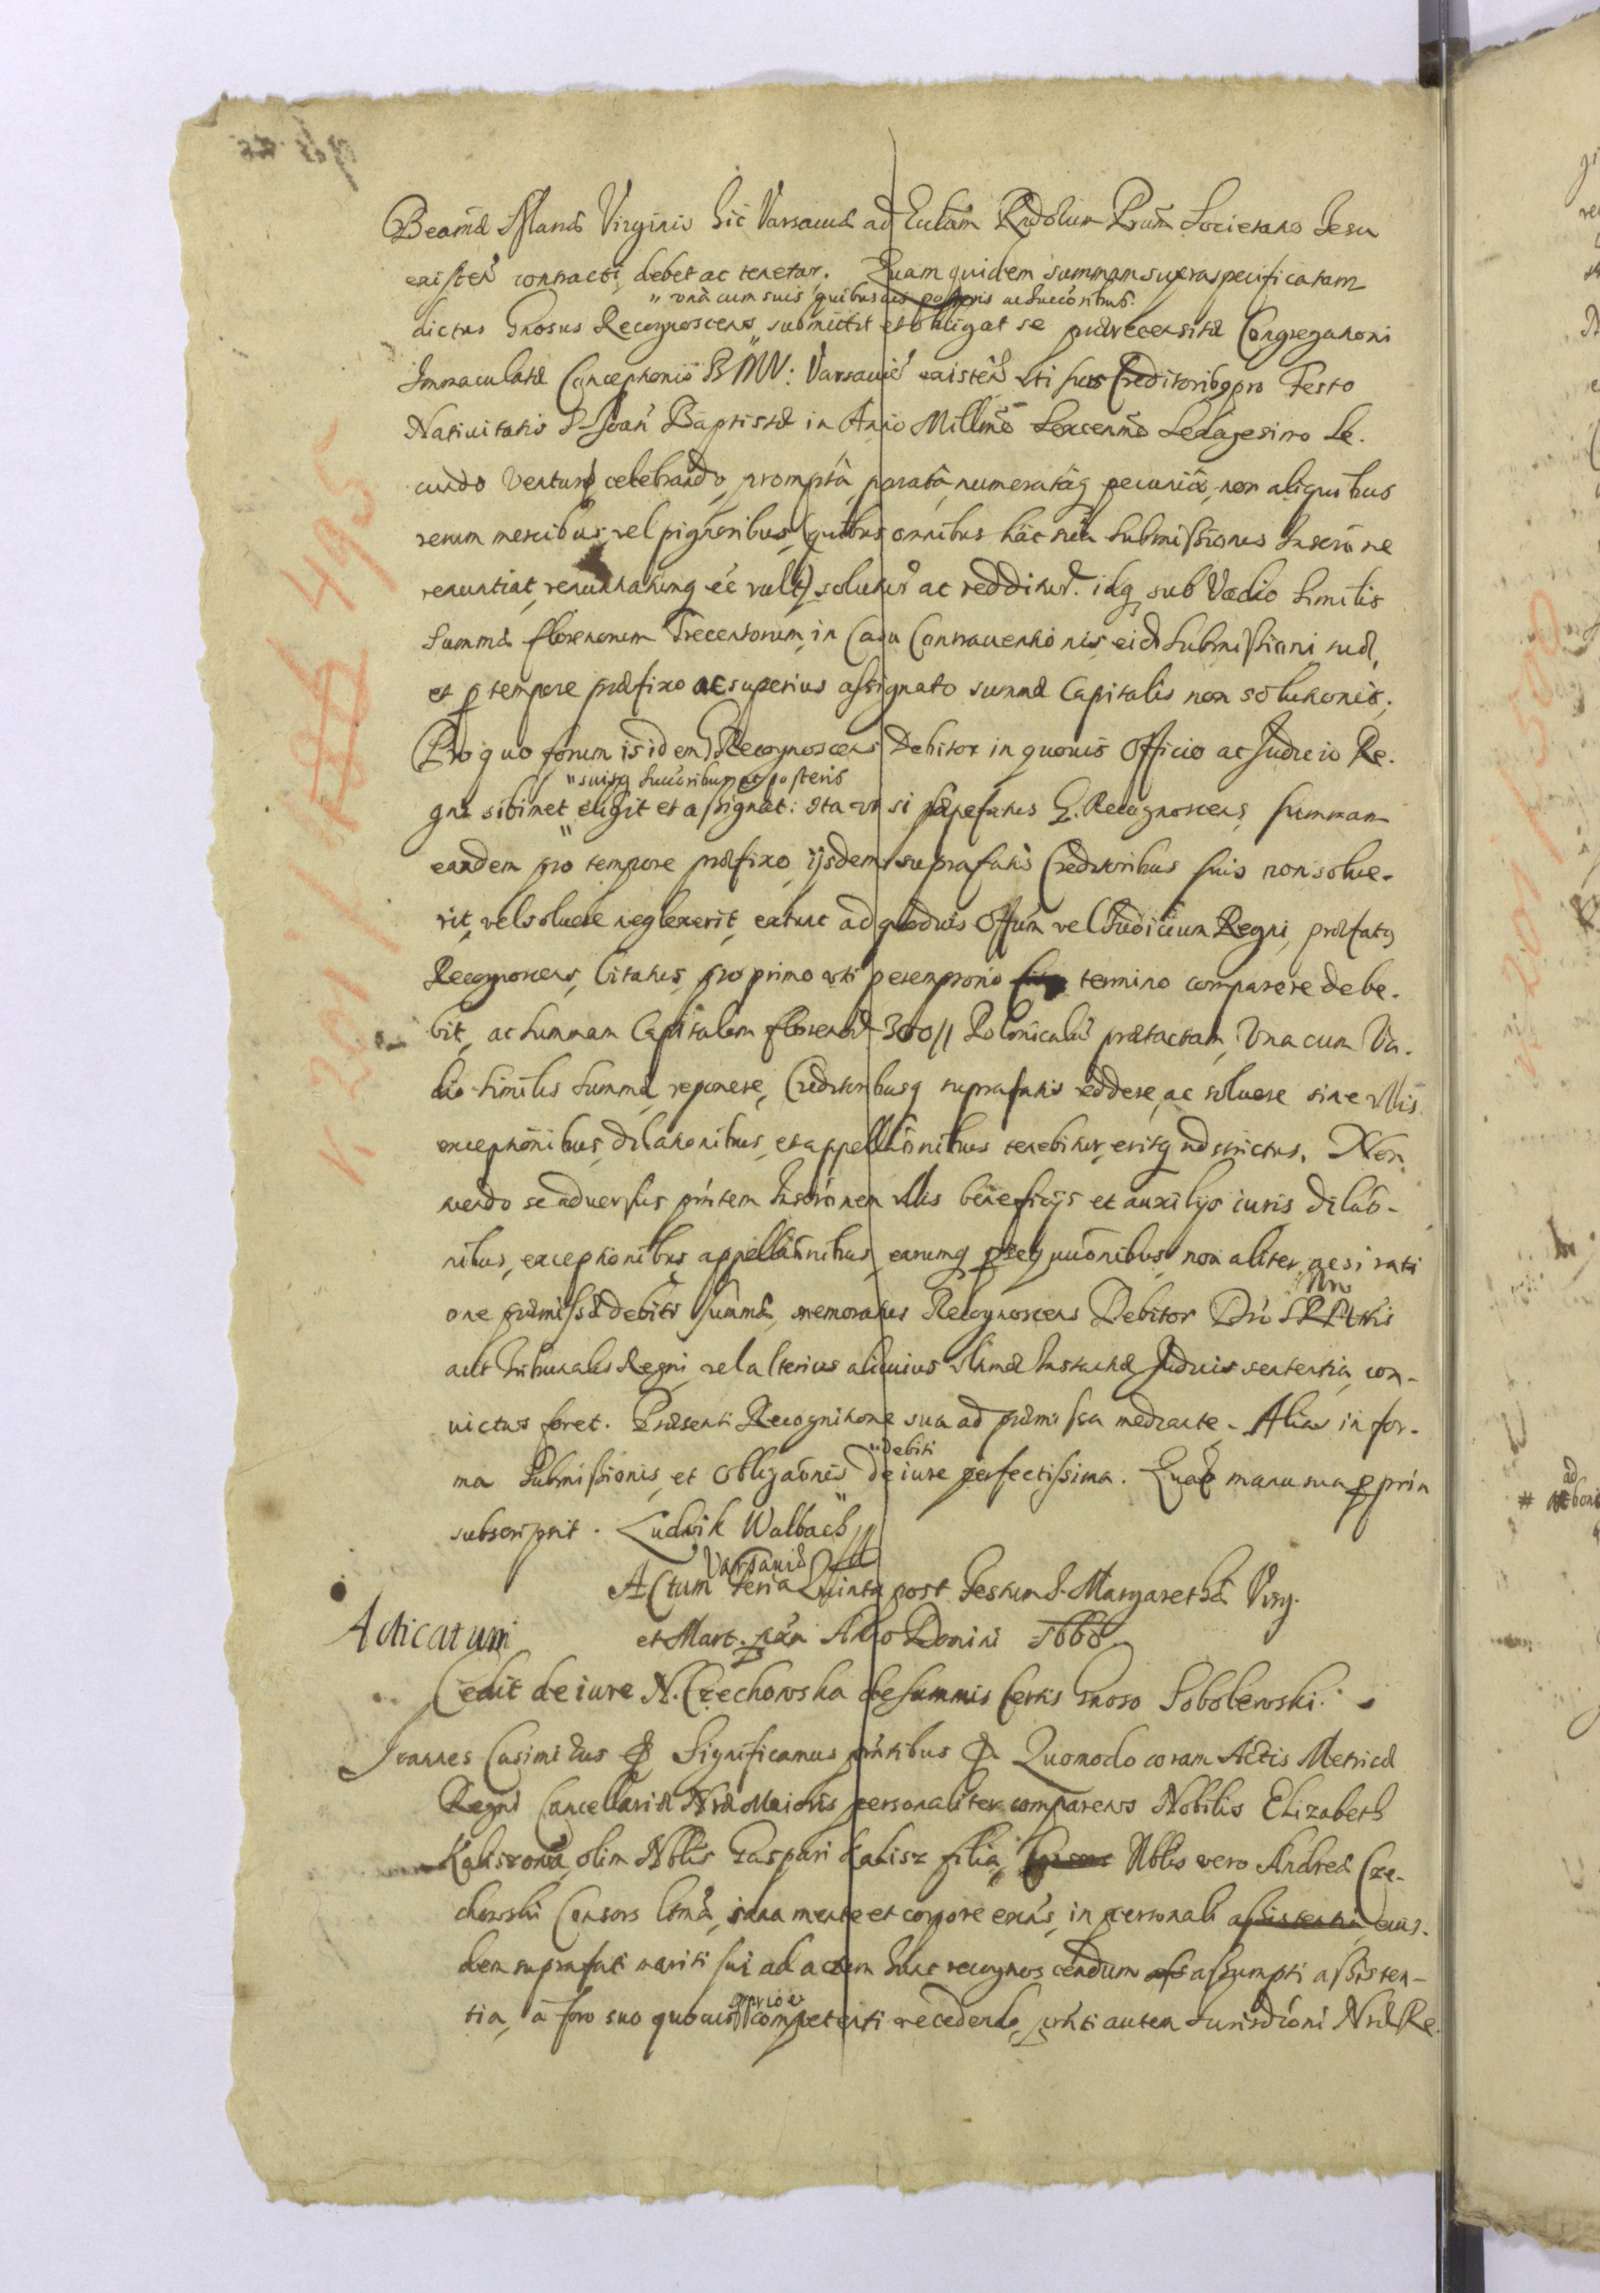 Beamæ Mariæ Virginis hic Varsaviæ ad Eccłam Rndorum Prum Societatis Jesu
existeñ contracti, debet ac tenetur. Quam quidem summam supraspecificatam
" unà cum suis quibusvis posteris ac succoribus
dictus Gnosus Recognoscens submittit et obligat se prærecensitæ Congregationi
Immaculatæ Conceptionis BMV: Varsaviæ existeñ uti suis Creditoribq pro Festo
Nativitatis S Joañ Baptistæ in Anno Millmo Sexcenmo Sexagesimo Se-
cundo venturo celebrando, promptâ, paratâ, numeratâq pecuniâ, non aliquibus
rerum mercibus, vel pignoribus, (quibus omnibus hâc suâ submissionis Inscrōne
renuntiat, renuntiatumq eē vult) soluturū ac redditurū. idq sub Vadio similis
summæ florenorum Trecentorum, in Casu Contraventionis eid submissioni suæ,
et p tempore præfixo ac superius assignato summæ Capitalis non solutionis;
Pro quo forum isidem Recognoscens Debitor in quovis Officio ac Judicio Re-
" suisq succoribus et posteris
gni sibimet eligit et assignat: Ita ut si sæpefatus G. Recognoscens, summam
eandem pro tempore præfixo, ijsdem suprafatis Creditoribus suis non solve-
rit, vel solvere neglexerit, extunc ad quodvis Offum vel Judicium Regni, præfatq
Recognoscens, Citatus, pro primo uti peremptorio termino comparere debe-
bit, ac summam Capitalem florenorū 300// Polonicaliū prætactam, Una cum Va-
dio similis summæ, reponere, Creditoribusq suprafatis reddere, ac solvere sine ullis
exceptionibus, dilationibus, et appellōnibus tenebitur, eritq adstrictus. Non
iuvando se adversus prntem Inscrōnem ullis beneficijs et auxilijs iuris dilaō-
nibus, exceptionibus appellaōnibus, earumq psequuōnibus non aliter, ac si rati
" Nri
one præmissæ debiti summæ, memoratus Recognoscens Debitor Dni SRMttis
aut Tribunalis Regni, vel alterius alicuius ultimæ Instantiæ Judicis sententia, con-
victus foret. Præsenti Recognitione sua ad præmissa mediante. Alias in for-
" debiti
ma submissionis, et Obligaōnis de iure perfectissima. Quaē manu sua p prin
subscripsit. Ludwik Walbach //
Varsaviæ
Actum Feria Quinta post Festum S. Margarethæ Virg.
et Mart. Anno Domini 1660.
Acticatum
Cedit de iure N. Czechowska de summis certis Gnoso Sobolewski.
Joannes Casimirus Significamus prntibus Quomodo coram Actis Metricæ
Regni Cancellariæ Nræ Maioris personaliter comparens Nobilis Elizabeth
Kaliszowna, olim Nblis Gaspari Kalisz filia, Nblis vero Andreæ Cze-
chowski Consors ltmâ, sana mente et corpore exns, in personali assistentia, eius-
dem suprafati mariti sui ad actum hunc recognoscendum assumpti assisten-
proprio et
tia, à foro suo quovis competenti recedendo, prnti autem Jurisdiōni Nræ Re-